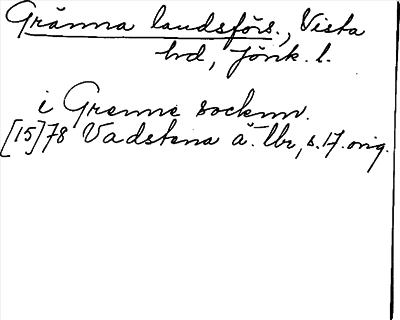 Gränna landsförs., Vista
hd, Jönk. l.
i Grenne socknn.
[15]78 Vadstena ä. lbr, s. 17. orig.